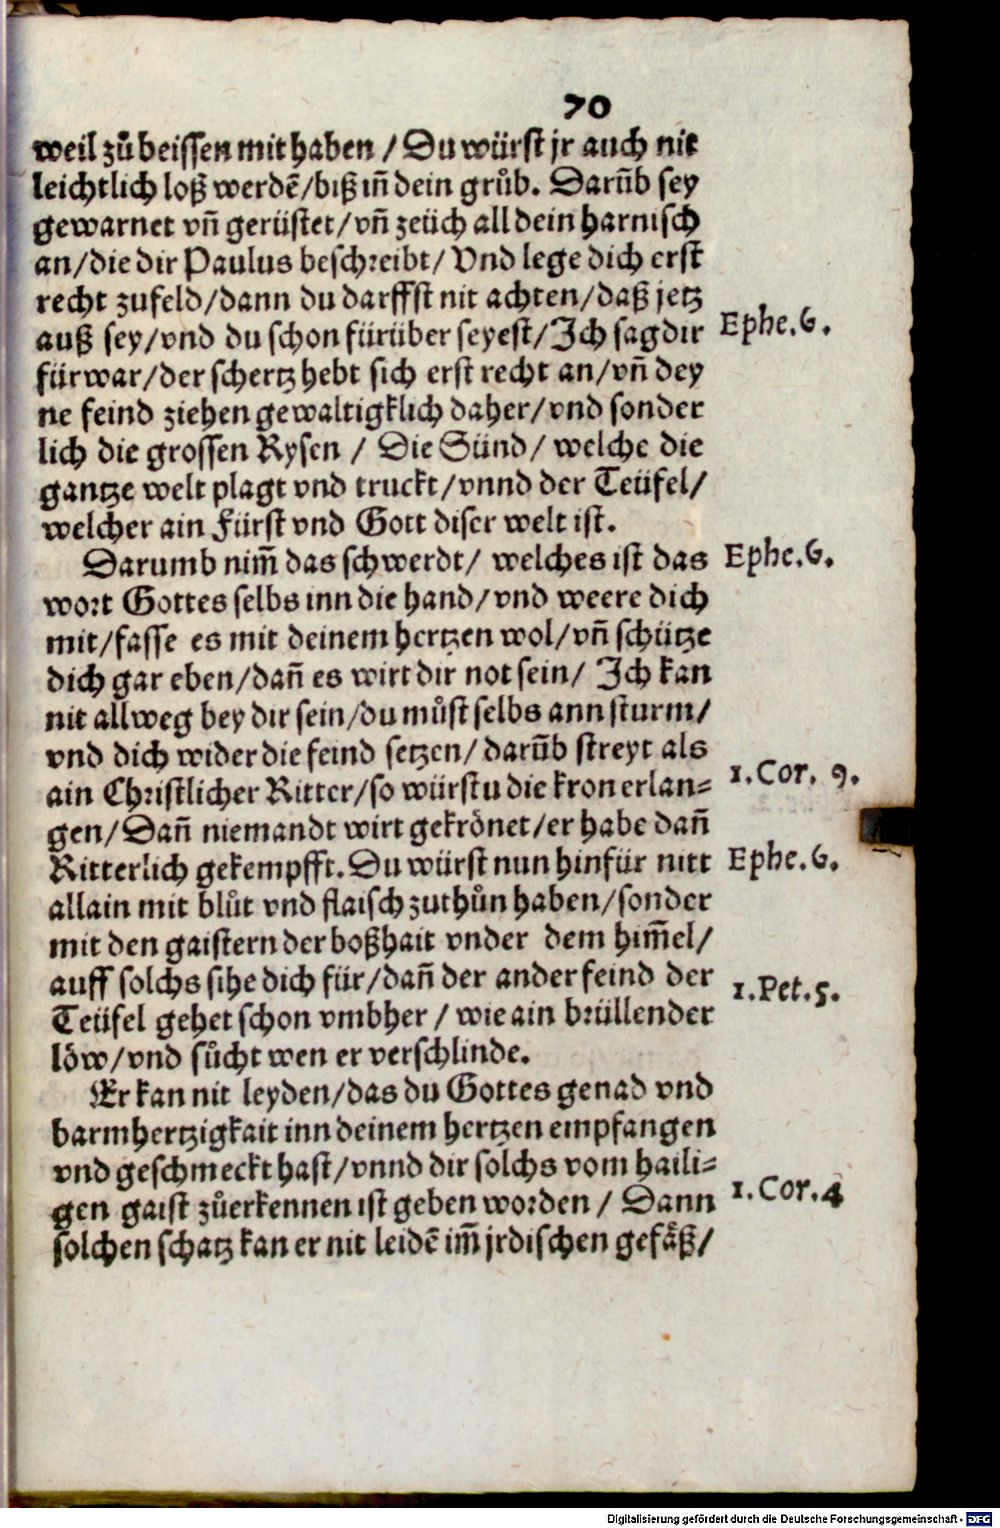 70
weil zů beissen mit haben / Du würst jr auch nit
leichtlich loß werdē/biß iñ dein grůb. Darūb sey
gewarnet vñ gerüstet/vñ zeüch all dein harnisch
an/die dir Paulus beschreibt/ Vnd lege dich erst
recht zufeld/dann du darffst nit achten/daß jetz
auß sey/vnd du schon fürüber seyest/Ich sag dir
Ephe.6.
fürwar/der schertz hebt sich erst recht an/vñ dey
ne feind ziehen gewaltigklich daher/vnd sonder
lich die grossen Rysen / Die Sünd/ welche die
gantze welt plagt vnd truckt/vnnd der Teüfel/
welcher ain Fürst vnd Gott diser welt ist.
Darumb nim̄ das schwerdt/ welches ist das
Ephe.6.
wort Gottes selbs inn die hand/vnd weere dich
mit/fasse es mit deinem hertzen wol/vñ schütze
dich gar eben/dañ es wirt dir not sein/ Ich kan
nit allweg bey dir sein/du můst selbs ann sturm/
vnd dich wider die feind setzen/ darūb streyt als
ain Christlicher Ritter/so würstu die kron erlan⸗
1.Cor. 9.
gen/Dañ niemandt wirt gekrönet/er habe dañ
Ritterlich gekempfft.Du würst nun hinfür nitt
Ephe.6.
allain mit blůt vnd flaisch zuthůn haben/sonder
mit den gaistern der boßhait vnder dem him̄el/
auff solchs sihe dich für/dañ der ander feind der
1.Pet.5.
Teüfel gehet schon vmbher / wie ain brüllender
löw/vnd sůcht wen er verschlinde.
Er kan nit leyden/das du Gottes genad vnd
barmhertzigkait inn deinem hertzen empfangen
vnd geschmeckt hast/vnnd dir solchs vom haili⸗
gen gaist zůerkennen ist geben worden / Dann
1.Cor.4
solchen schatz kan er nit leidē im̄ jrdischen gefäß/
Digitalisierung gefördert durch die Deutsche Forschungsgemeinschaft - DFG